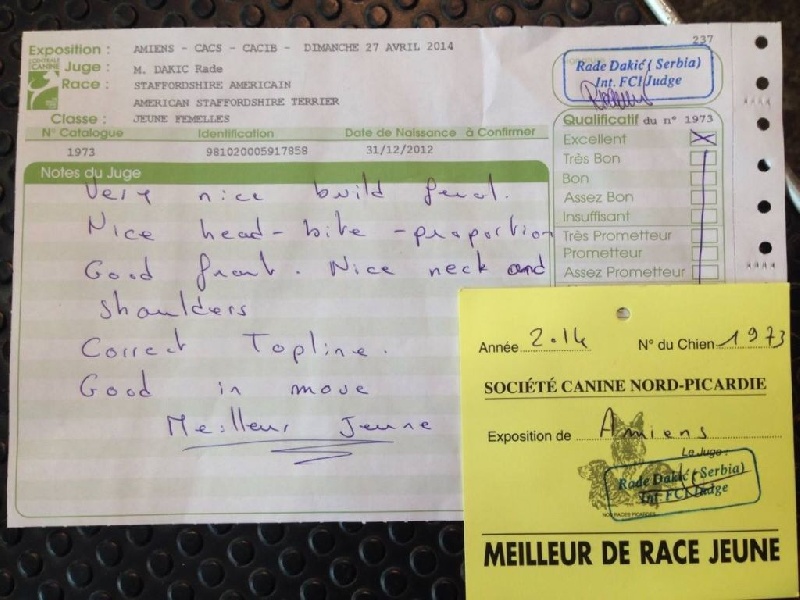 237
Exposition : AMIENS - CACS - CACIB - DIMANCHE 27 AVRIL 2014
CENTRALE CANINE
Juge : M. DAKIC Rade
Race : STAFFORDSHIRE AMERICAIN
AMERICAN STAFFORDSHIRE TERRIER
Classe : JEUNE FEMELLES
Rade Dakić ( Serbia)
Int. FCI Judge
N° Catalogue Identification Date de Naissance à Confirmer
1973 981020005917858 31/12/2012
Qualificatif du n° 1973
Excellent
Très Bon
Bon
Assez Bon
Insuffisant
Très Prometteur
Prometteur
Assez Prometteur
Notes du Juge
Very nice build femal.
Nice head - bite - proportion
Good front. Nice neck and
shoulders
Correct Topline.
Good in move
Meilleur Jeune
Année 2014 N° du Chien 1973
SOCIÉTÉ CANINE NORD-PICARDIE
Exposition de Amiens
Le Juge :
Rade Dakić (Serbia)
Int. FCI Judge
MEILLEUR DE RACE JEUNE